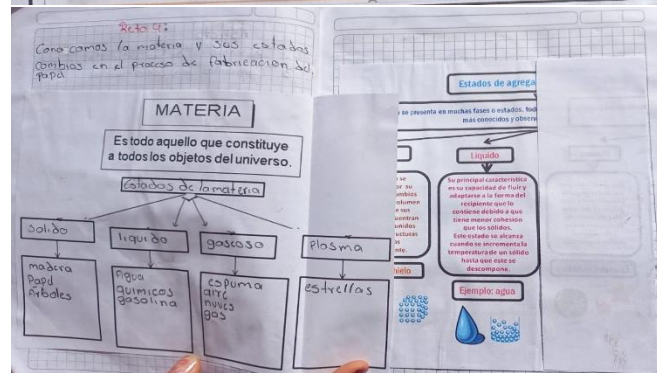 Reto 4:
Conozcamos la materia y sus estados
cambios en el proceso de fabricación del
papel
MATERIA
Es todo aquello que constituye
a todos los objetos del universo.
Estados de la materia
Solido
liquido
gaseoso
Plasma
madera
Papel
Árboles
Agua
quimicos
gasolina
espuma
aire
nuves
gas
estrellas
Estados de agrega
se presenta en muchas fases o estados, tod
más conocidos y observ
Liquido
Su principal característica
es su capacidad de fluir y
adaptarse a la forma del
recipiente que lo
contiene debido a que
tiene menor cohesión
que los sólidos.
Este estado se alcanza
cuando se incrementa la
temperatura de un sólido
hasta que este se
descompone.
hielo
Ejemplo: agua